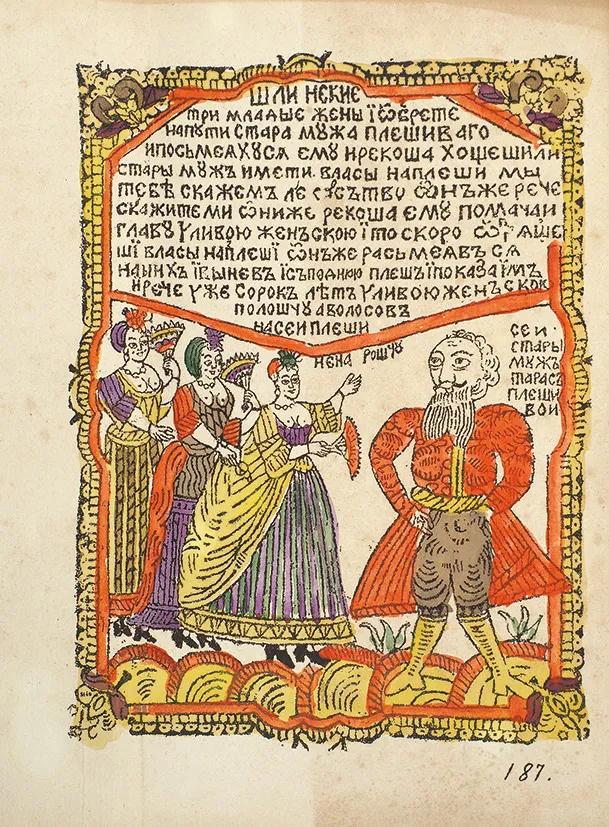 ШЛИ НСКИЕ
ТРИ МЛАДЫЕ ЖЕНЫ Ї ѾБРЕТЕ
НАПУТИ СТАРА МУЖА ПЛЕШИВАГО
ИПОСЬМЕЯХУСЯ ЕМУ ИРЕКОША ХОЩЕШИЛИ
СТАРЫ МУЖЪ ИМЕТИ ВЛАСЫ НАПЛЕШИ МЫ
ТЕБѢ СКАЖЕМЪ ѠНЪЖЕ РЕЧЕ
СКАЖИТЕМИ ѠНИЖЕ РЕКОША ЕМУ ПОМАЧАИ
ГЛАВУ УЛИВОЮ ЖЕНЬСКОЮ Ї ТО СКОРО
ШЇ ВЛАСЫ НАПЛЕШЇ ѠНЪЖЕ РАСЬМЕЯВЪ СЯ
НАНИХЪ ЇВЫНЕВЪ ПЛЕШЬ ЇПОКАЗА ЇМЪ
ИРЕЧЕ УЖЕ СОРОКЪ ЛѢТЪ УЛИВОЮ ЖЕНЪ СКОЮ
ПОЛОЩУ АВОЛОСОВЪ
НАСЕИ ПЛЕШИ
НЕНА РОЩУ
СЕИ
СТАРЫ
МУЖЪ
ТАРАСЪ
ПЛЕШИ
ВОИ
187.